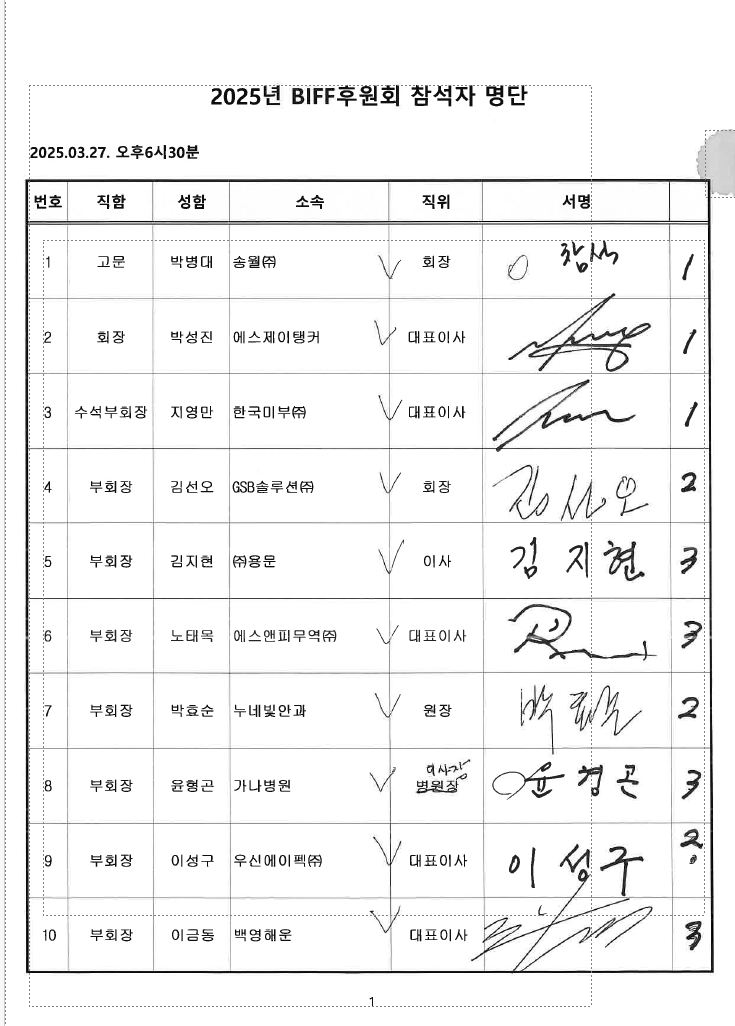 2025년 BIFF후원회 참석자 명단
2025.03.27. 오후6시30분
번호 직함 성함 소속 직위 서명
1 고문 박병대 송월㈜ 회장 참석 1
2 회장 박성진 에스제이탱커 대표이사 1
3 수석부회장 지영만 한국미부㈜ 대표이사 1
4 부회장 김선오 GSB솔루션㈜ 회장 김선오 2
5 부회장 김지현 ㈜용문 이사 김지현 3
6 부회장 노태목 에스앤피무역㈜ 대표이사 3
7 부회장 박효순 누네빛안과 원장 박효순 2
이사장
8 부회장 윤형곤 가나병원 병원장 윤형곤 3
9 부회장 이성구 우신에이펙㈜ 대표이사 이성구 2
10 부회장 이금동 백영해운 대표이사 3
1